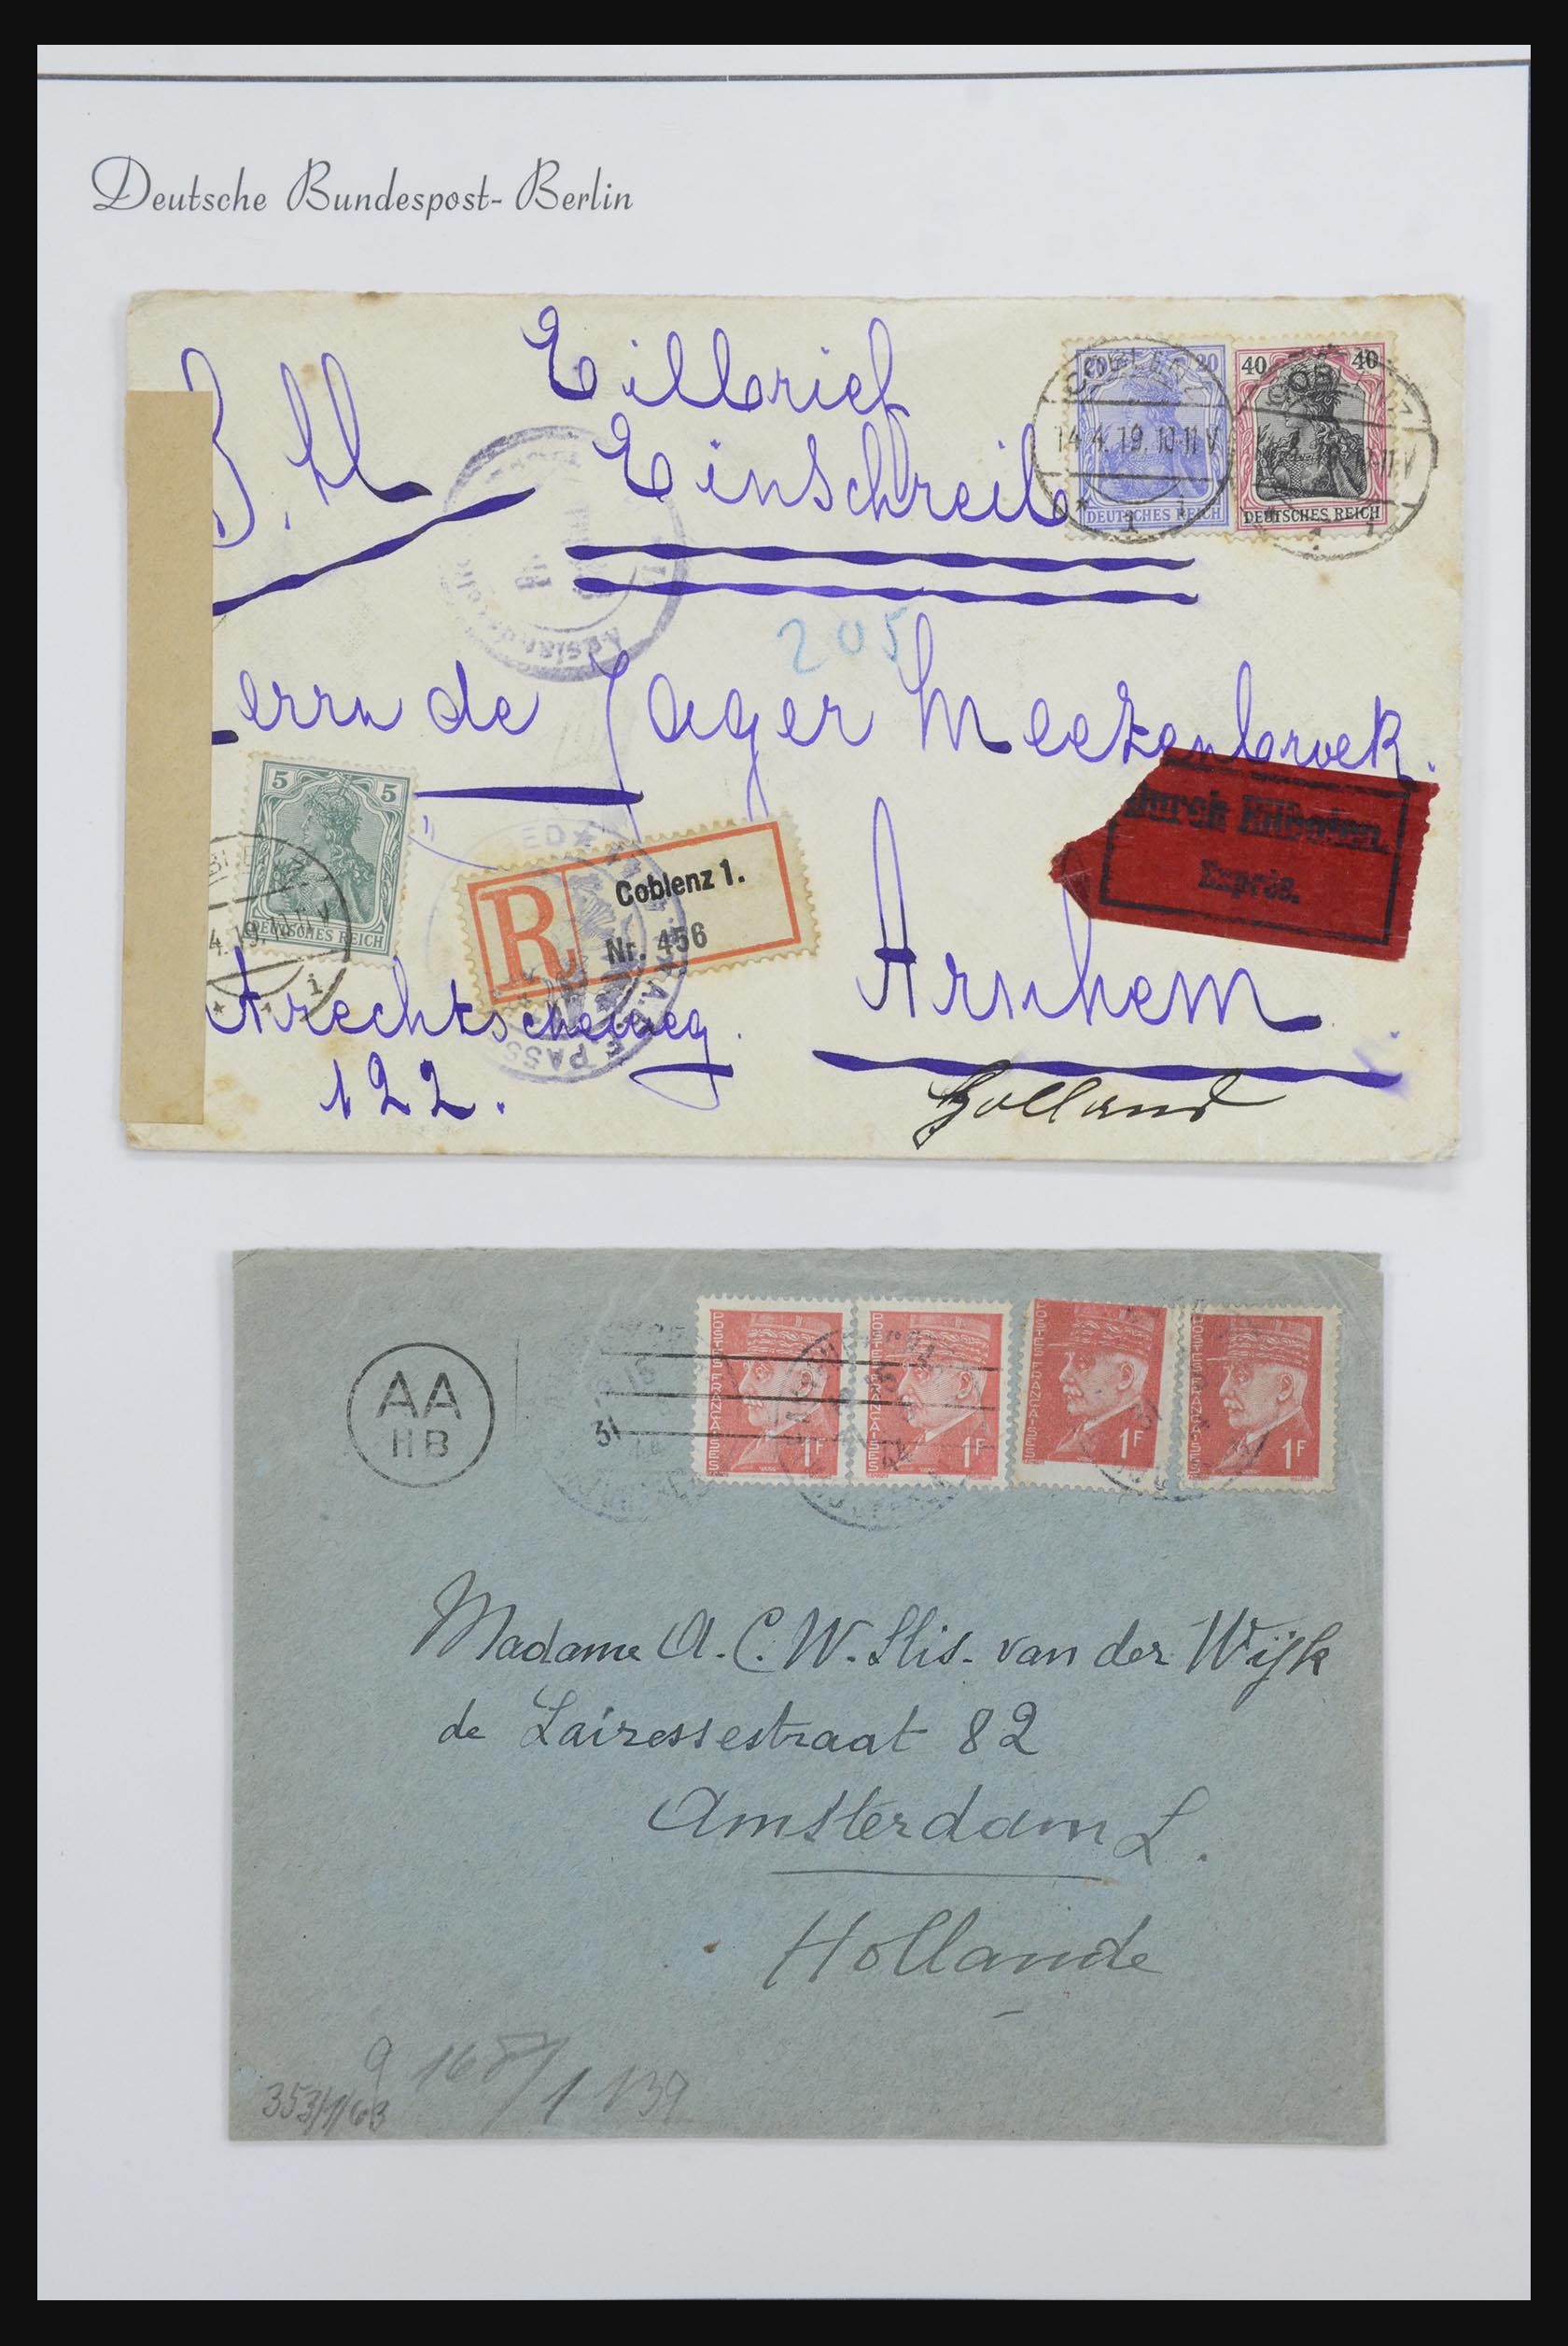 Deutsche Bundespost-Berlin
Eilbrief
Einschreib
20 20
40 40
DEUTSCHES REICH
DEUTSCHES REICH
COBLENZ
14.4.19.10-11V
205
errn de Jager Meezenbroek.
5 5
DEUTSCHES REICH
4.19.10-11V
R
Coblenz 1.
Nr. 456
Durch Eilboten.
Exprès.
Arnhem
trechtscheweg.
122.
Holland
AA
II B
POSTES FRANÇAISES 1F
POSTES FRANÇAISES 1F
POSTES FRANÇAISES 1F
POSTES FRANÇAISES 1F
Madame A. C. W. Slis. van der Wijk
de Lairessestraat 82
Amsterdam Z.
Hollande
9 168/1 139
353/1/63